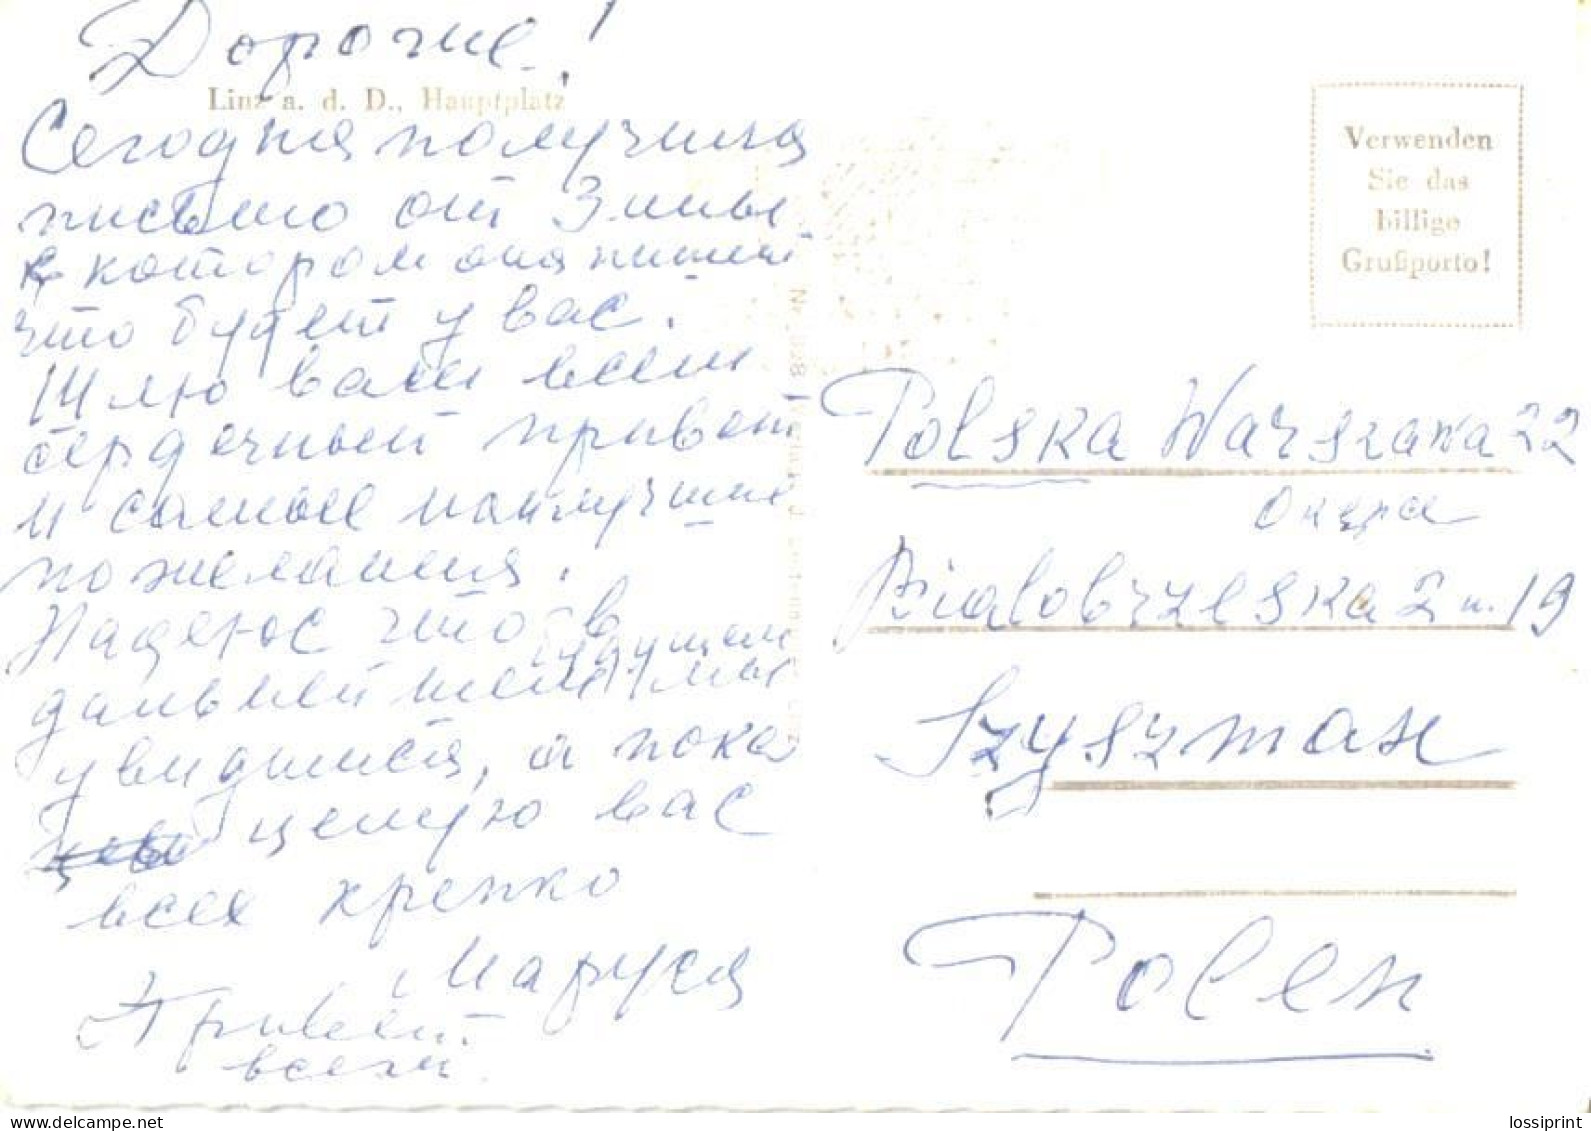 Дорогие!
Linz a. d. D., Hauptplatz
Сегодня получила
письмо от Зины
в котором она пишет
что будет у вас.
Шлю вам всем
сердечный привет
и самые наилучшие
пожелания.
Надеюс что в
дальнейшем будущем мы
увидимся, а пока
целую вас
всех крепко
Маруся
Привет
всем.
Verwenden
Sie das
billige
Grußporto!
Polska Warszawa 22
Bialobrzeska 2 m. 19
Szyszman
Polen
lossiprint